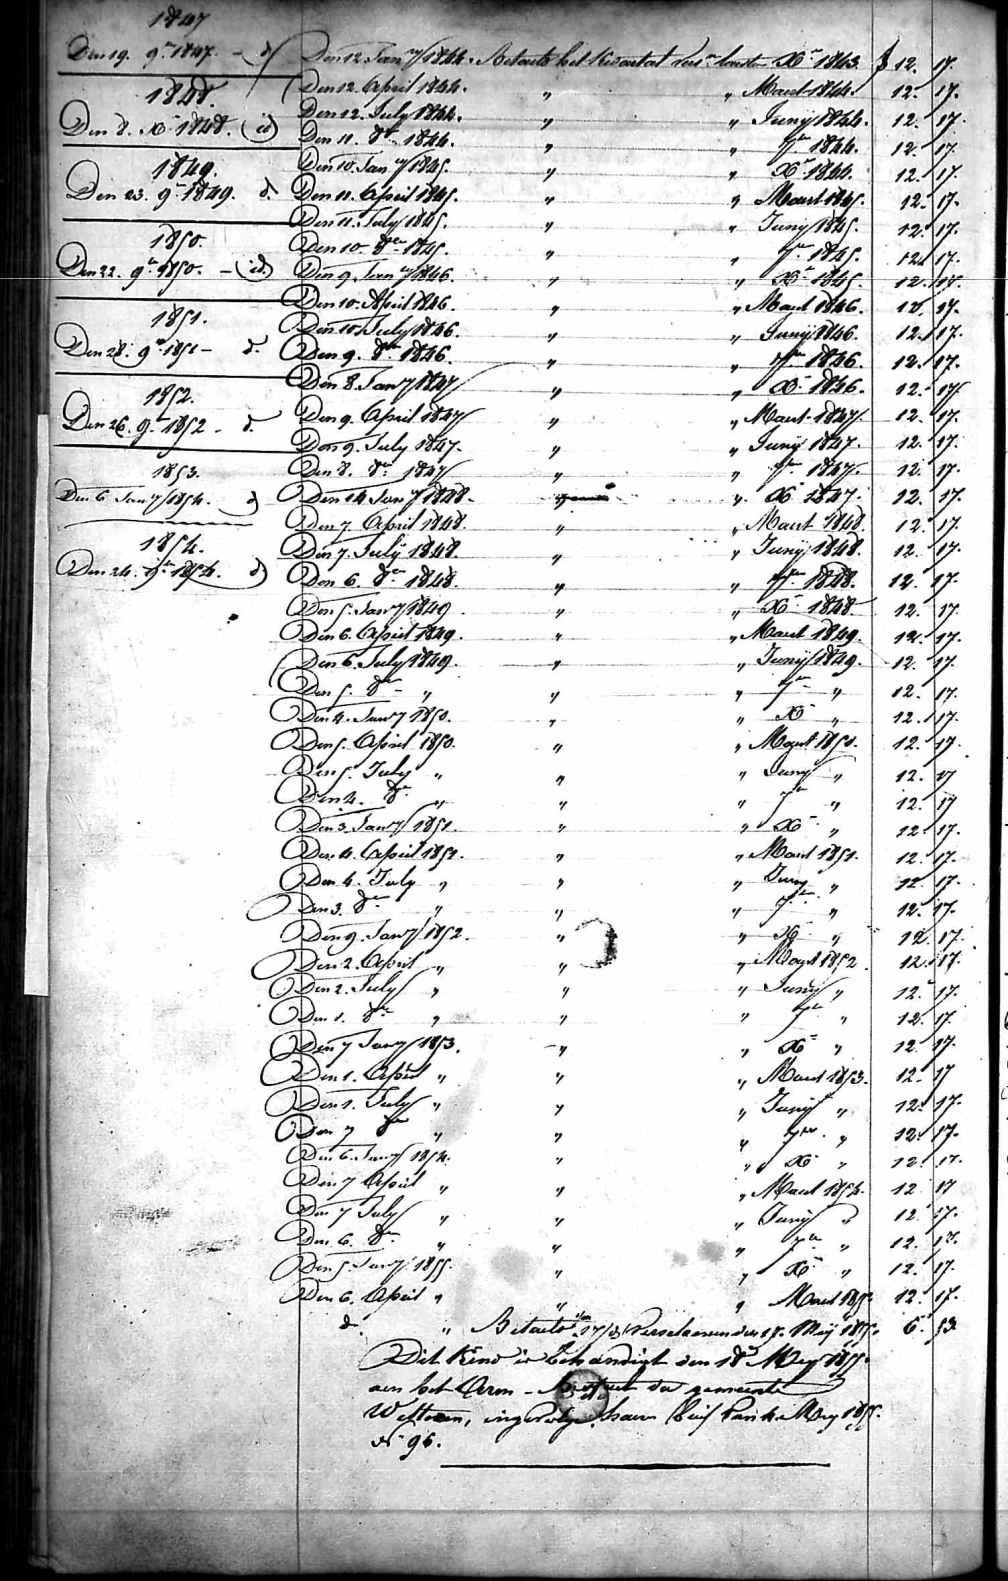 1847
Den 19. 9r 1847. - d
1848.
Den 8. Xr 1848. (id)
1849.
Den 23. 9r 1849. d.
1850.
Den 22. 9r 1850. - (id.)
1851.
Den 28. 9r 1851 - d.
1852.
Den 26. 9r 1852 - d.
1853.
Den 6 Jany 1854. d
1854.
Den 24. 9r 1854. d
Den 12 Jany 1844. Betaelt het Kwartael Xr 1843 f 12. 17.
Den 12 April 1844. " " Maert 1844. 12. 17.
Den 12 July 1844. " " Juny 1844. 12. 17.
Den 11. 8r 1844. " " 7r 1844. 12. 17.
Den 10 Jany 1845. " " Xr 1844. 12. 17.
Den 11. April 1845. " " Maert 1845. 12. 17.
Den 11. July 1845. " " Juny 1845. 12. 17.
Den 10 8r 1845. " " 7r 1845. 12. 17.
Den 9 Jany 1846. " " Xr 1845. 12. 17.
Den 10. April 1846. " " Maert 1846. 12. 17.
Den 10 July 1846. " " Juny 1846. 12. 17.
Den 9. 8r 1846. " " 7r 1846. 12. 17.
Den 8 Jany 1847 " " Xr 1846. 12. 17
Den 9. April 1847 " " Maert 1847. 12. 17.
Den 9. July 1847. " " Juny 1847. 12. 17.
Den 8. 8r 1847 " " 7r 1847. 12. 17.
Den 14 Jany 1848. " " Xr 1847. 12. 17.
Den 7. April 1848. " " Maert 1848. 12. 17.
Den 7. July 1848. " " Juny 1848. 12. 17.
Den 6. 8r 1848. " " 7r 1848. 12. 17.
Den 5. Jany 1849 " " Xr 1848. 12. 17.
Den 6. April 1849. " " Maert 1849. 12. 17.
Den 6. July 1849. " " Juny 1849. 12. 17.
Den 5. 8r " " " 7r " 12. 17.
Den 4. Jany 1850. " " Xr " 12. 17.
Den 5. April 1850. " " Maert 1850. 12. 17.
Den 5. July " " " Juny " 12. 17
Den 4. 8r " " " 7r " 12. 17
Den 3. Jany 1851. " " Xr " 12. 17.
Den 4. April 1851. " " Maert 1851. 12. 17.
Den 4. July " " " Juny " 12. 17.
Den 3. 8r " " " 7r " 12. 17.
Den 9. Jany 1852. " " Xr " 12. 17.
Den 2. April " " " Maert 1852 12. 17.
Den 2. July " " " Juny " 12. 17.
Den 1. 8r " " " 7r " 12. 17.
Den 7 Jany 1853. " " Xr " 12. 17.
Den 1. April " " " Maert 1853. 12. 17
Den 1. July " " " Juny " 12. 17.
Den 7 8r " " " 7r " 12. 17.
Den 6. Jany 1854. " " Xr " 12. 17.
Den 7 April " " " Maert 1854. 12. 17
Den 7 July " " " Juny " 12. 17.
Den 6. 8r " " " 7r " 12. 17.
Den 5. Jany 1855. " " Xr " 12. 17.
Den 6. April " " " Maert 1855. 12. 17.
d. " Betaelt den 15. Mey 1855. 6. 53
Dit Kind is behandigt den 18n Mey 1855.
aen het Arm- der gemeente
Wetteren, ingevolge brief van 14 Mey 1855.
No 96.